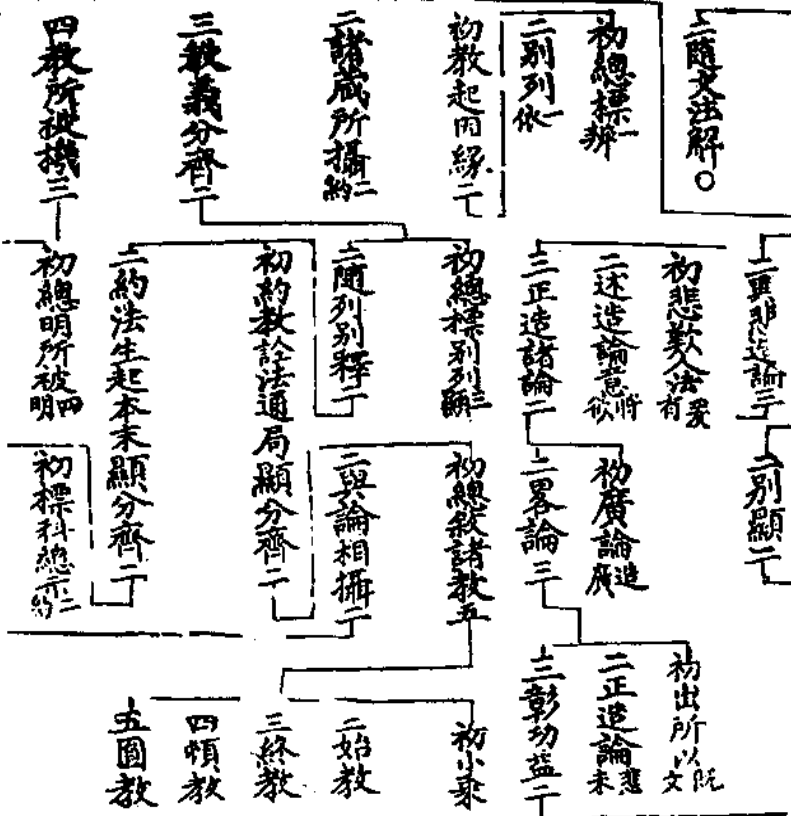 二隨文注解○
初總標一辨
二別列一依
初教起因緣二
二諸藏所攝二約
三教義分齊二
四教所被機三
初悲歎人法
二述造論意將欲
三正造諸論二
初總標別列三
二隨列別釋二
初約教詮法通局顯分齊二
二約法生起本末顯分齊二
初總明所被四明
二別顯二
初廣論造廣
二畧論三
初總敘諸教五
二與論相攝二
初標科總示二約
初出所以
二正造論悲末
三彰功益二
初小乘
二始教
三終教
四頓教
五圓教